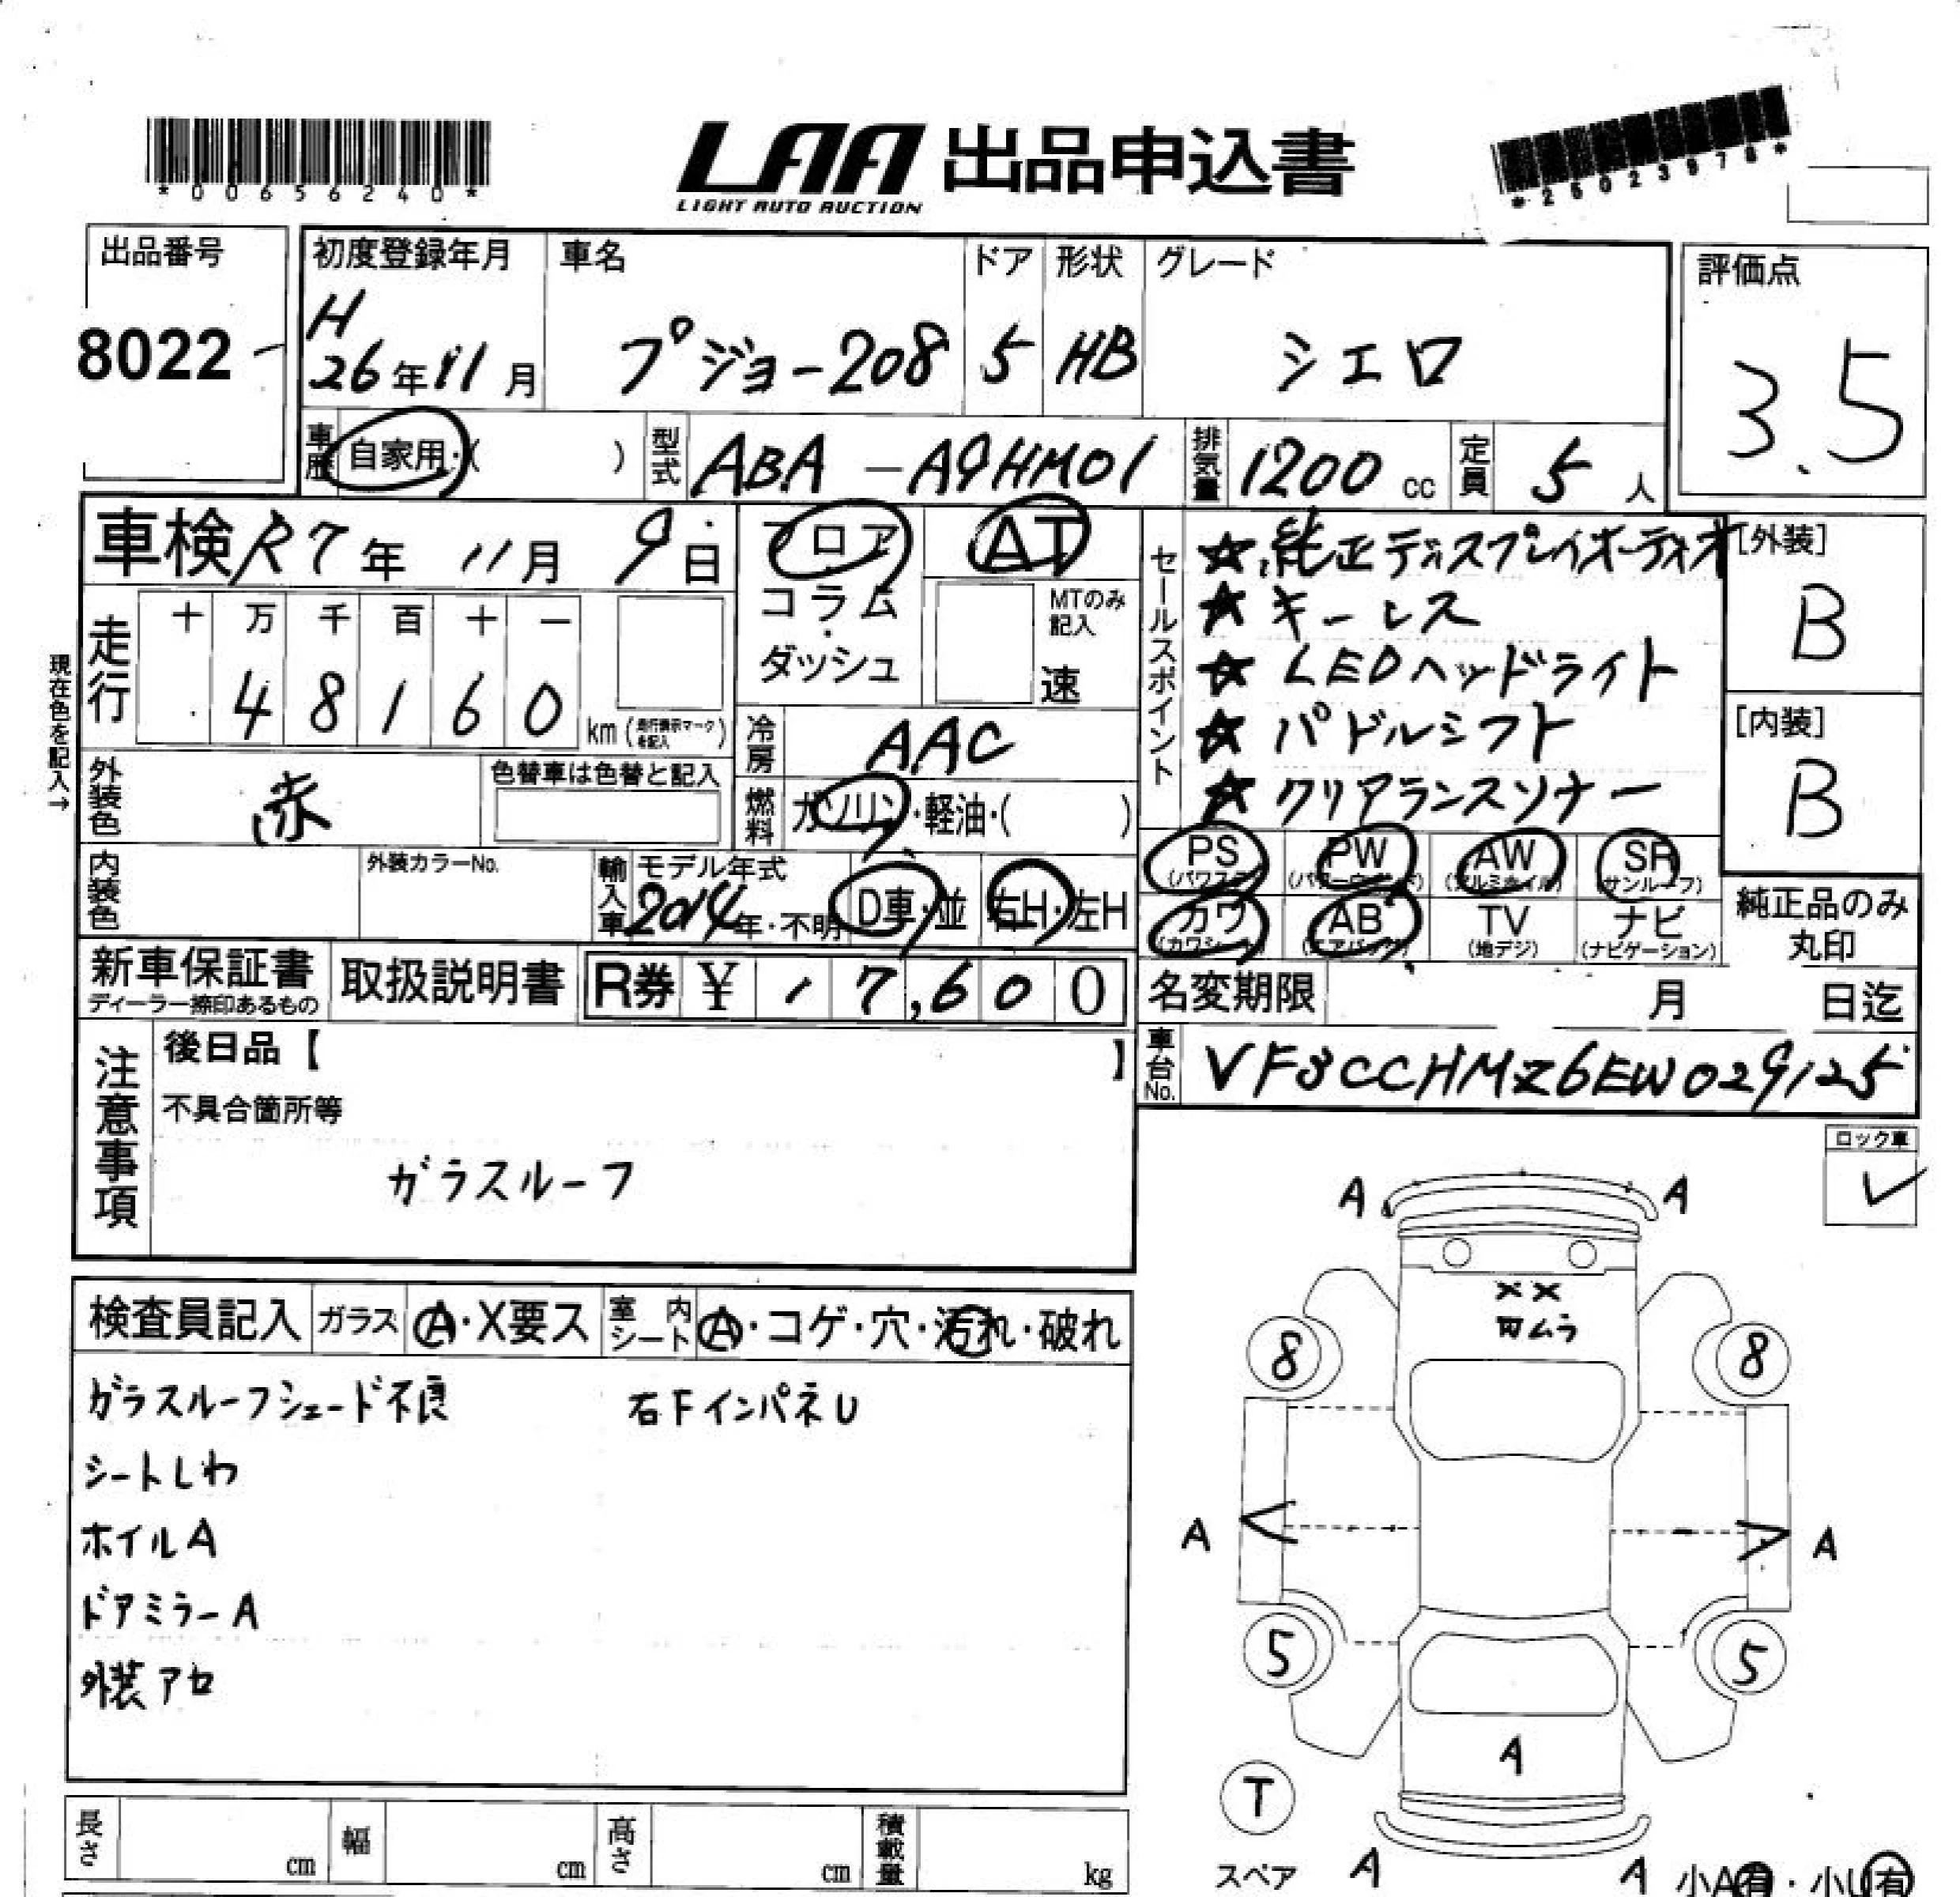 *00656240*
LAA 出品申込書
LIGHT AUTO AUCTION
*26023978*
出品番号
8022
初度登録年月
H
26年11月
車名
プジョー208
ドア
5
形状
HB
グレード
シエロ
評価点
3.5
車歴
自家用・( )
型式
ABA-A9HM01
排気量
1200 cc
定員
5 人
車検 R7年 11月 9日
フロア
コラム
・
ダッシュ
AT
MTのみ
記入
速
セールスポイント
☆純正ディスプレイオーディオ
☆キーレス
☆LEDヘッドライト
☆パドルシフト
☆クリアランスソナー
[外装]
B
[内装]
B
現在色を記入→
走行
十 万 千 百 十 一
4 8 1 6 0
km(走行表示マークを記入)
冷房
AAC
外装色
赤
色替車は色替と記入
燃料
ガソリン・軽油・( )
内装色
外装カラーNo.
輸入車
モデル年式
2014年・不明
D車・並
右H・左H
PS
(パワステ)
PW
(パワーウインド)
AW
(アルミホイル)
SR
(サンルーフ)
カワ
(カワシート)
AB
(エアバッグ)
TV
(地デジ)
ナビ
(ナビゲーション)
純正品のみ
丸印
新車保証書
ディーラー捺印あるもの
取扱説明書
R券 ¥ 17,600
名変期限 月 日迄
車台No.
VF3CCHMZ6EW029125
注意事項
後日品【 】
不具合箇所等
ガラスルーフ
ロック車
検査員記入
ガラス
A・X要ス
室内シート
A・コゲ・穴・汚れ・破れ
ガラスルーフシェード不良
右FインパネU
シートしわ
ホイルA
ドアミラーA
外装アセ
A
A
XX
凹ムラ
8
8
A
A
5
5
A
T
スペア
A
A
小A有・小U有
長さ
cm
幅
cm
高さ
cm
積載量
kg